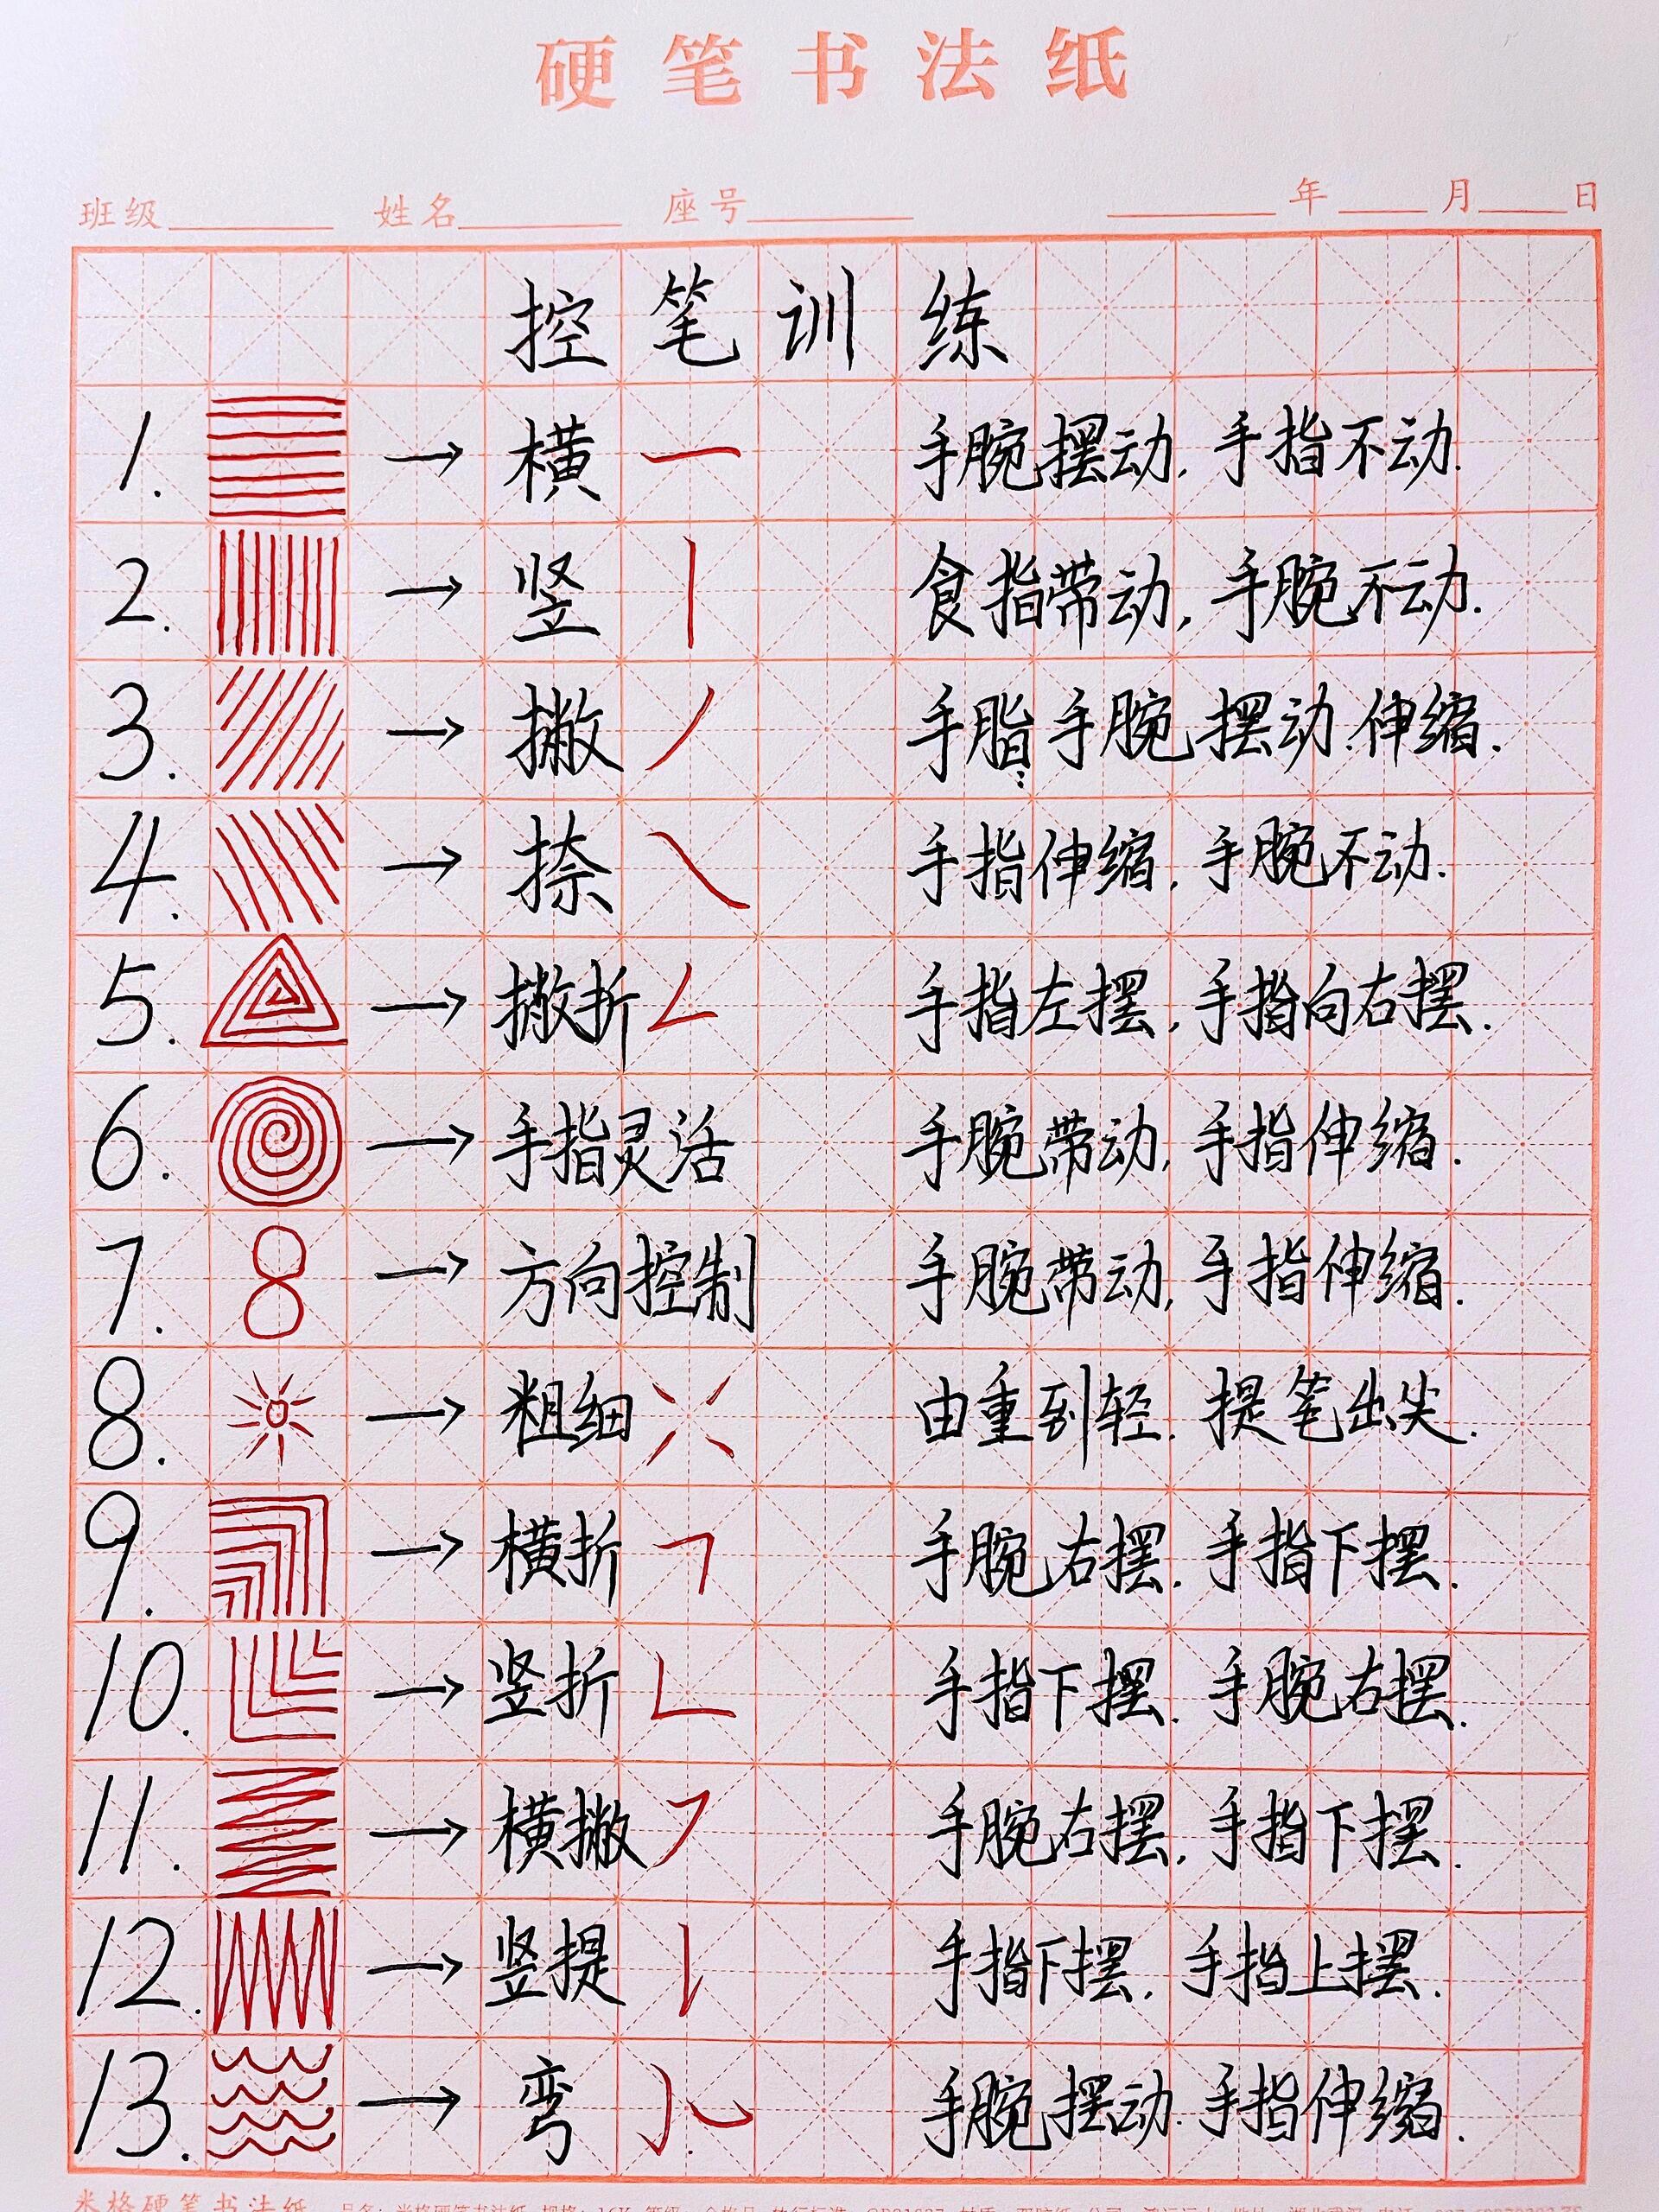 硬笔书法纸
班级 姓名 座号 年 月 日
控笔训练
1. → 横 手腕摆动,手指不动.
2. → 竖 食指带动,手腕不动.
3. → 撇 手脂手腕摆动.伸缩.
4. → 捺 手指伸缩,手腕不动.
5. → 撇折 手指左摆,手指向右摆.
6. → 手指灵活 手腕带动,手指伸缩.
7. → 方向控制 手腕带动,手指伸缩.
8. → 粗细 由重到轻.提笔出尖.
9. → 横折 手腕右摆.手指下摆.
10. → 竖折 手指下摆.手腕右摆.
11. → 横撇 手腕右摆,手指下摆.
12. → 竖提 手指下摆.手指上摆.
13. → 弯 手腕摆动.手指伸缩.
米格硬笔书法纸